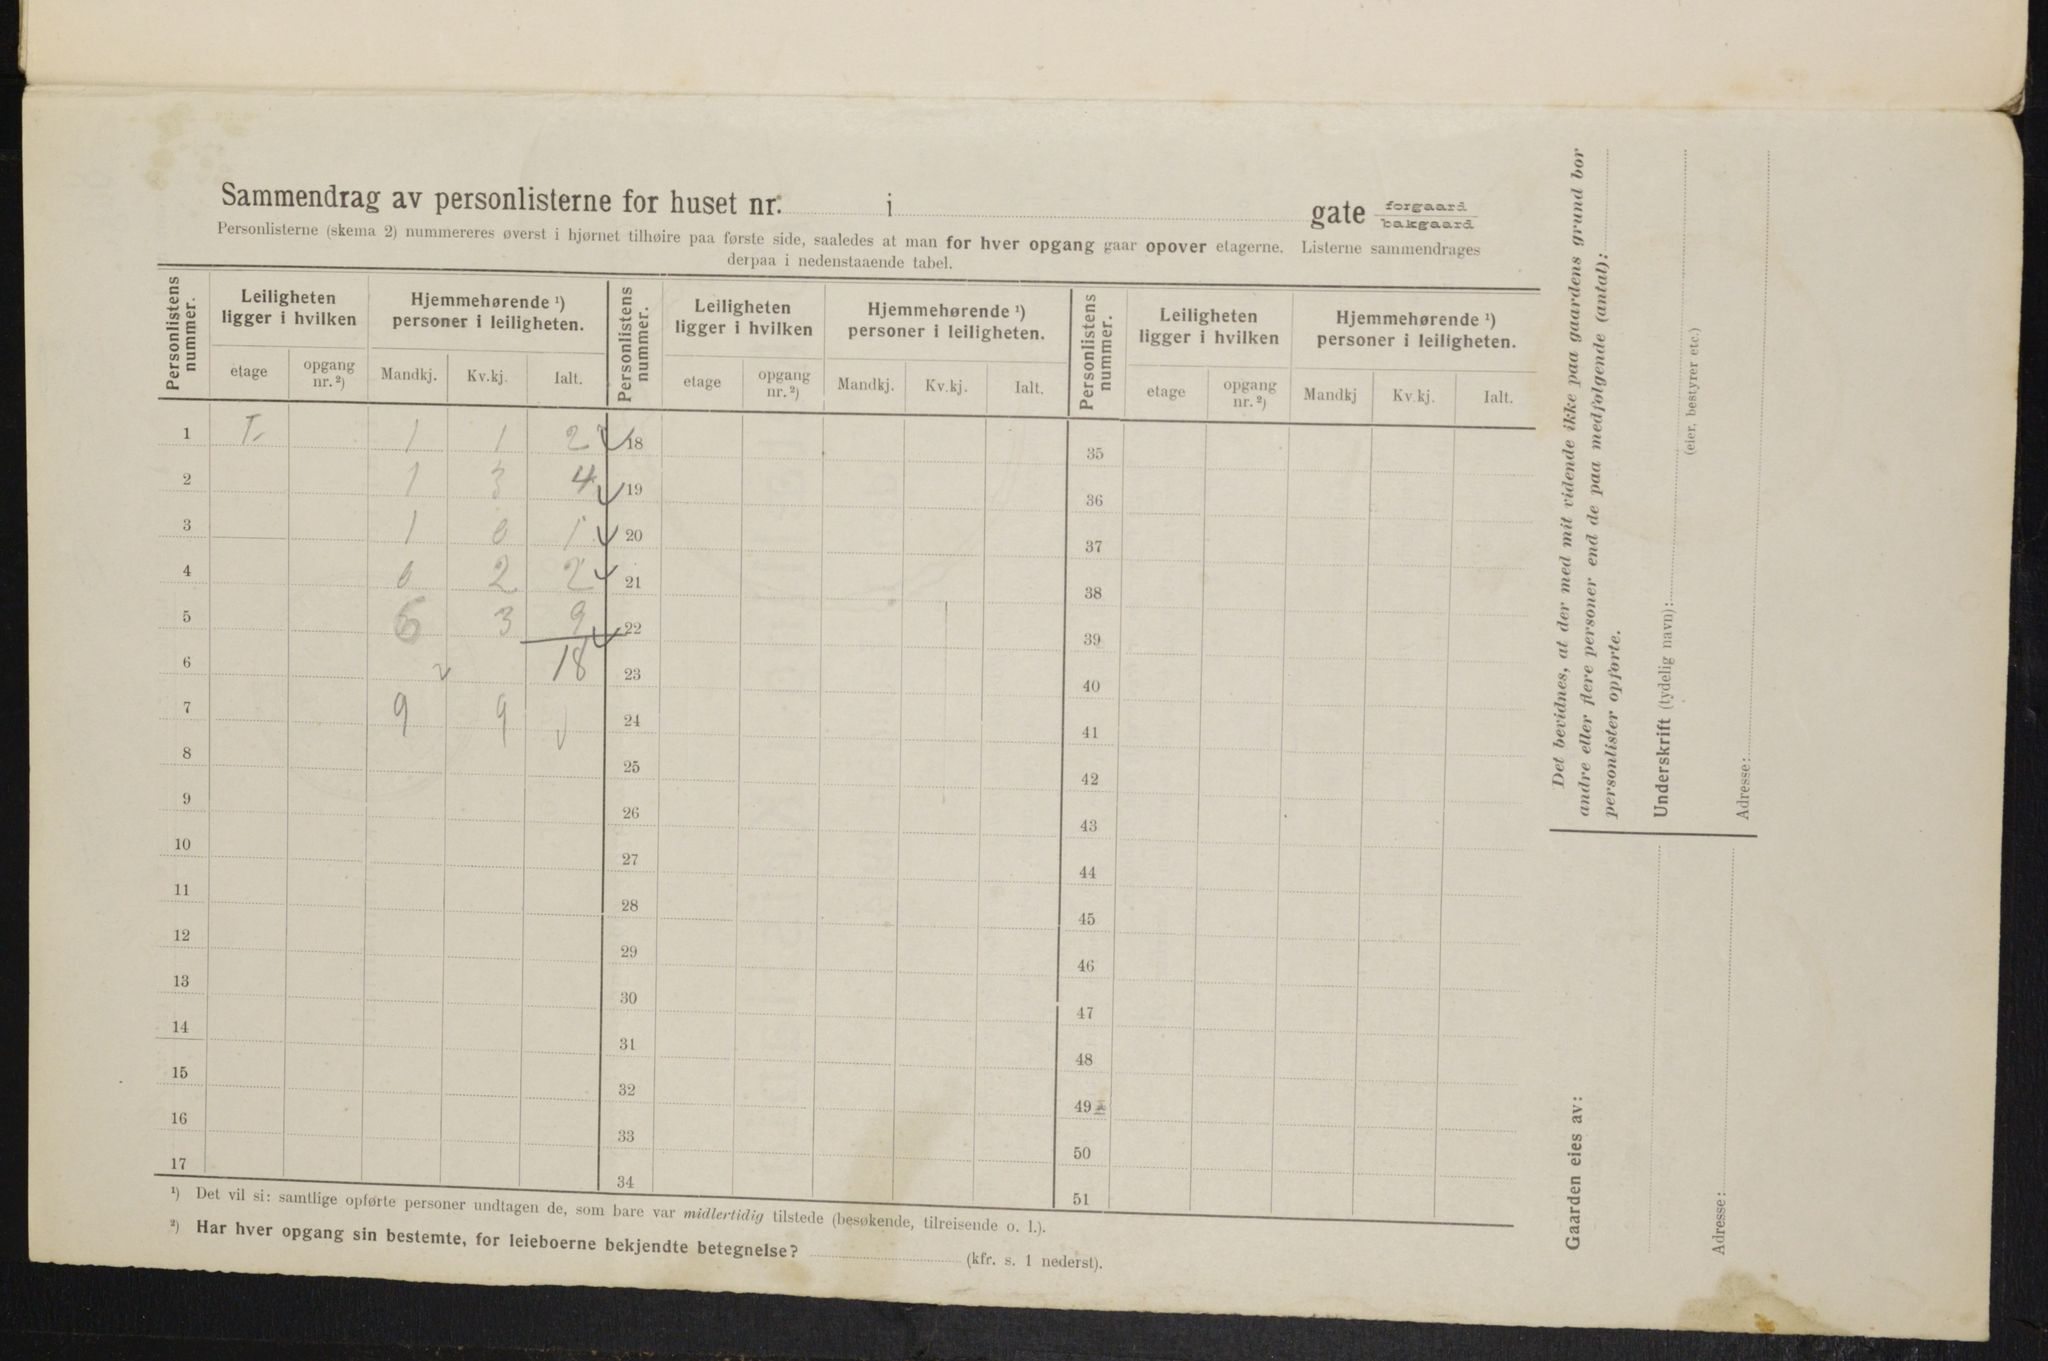 Sammendrag av personlisterne for huset nr. i gate forgaard bakgaard
Personlisterne (skema 2) nummereres øverst i hjørnet tilhøire paa første side, saaledes at man for hver opgang gaar opover etagerne. Listerne sammendrages
derpaa i nedenstaaende tabel.
Personlistens nummer. Leiligheten ligger i hvilken Hjemmehørende ¹) personer i leiligheten. Personlistens nummer. Leiligheten ligger i hvilken Hjemmehørende ¹) personer i leiligheten. Personlistens nummer. Leiligheten ligger i hvilken Hjemmehørende ¹) personer i leiligheten.
etage opgang nr. ²) Mandkj. Kv.kj. Ialt. etage opgang nr. ²) Mandkj. Kv.kj. Ialt. etage opgang nr. ²) Mandkj Kv.kj. Ialt.
1 1 1 2 18 35
2 1 3 4 19 36
3 1 0 1 20 37
4 0 2 2 21 38
5 6 3 9 22 39
6 18 23 40
7 9 9 24 41
8 25 42
9 26 43
10 27 44
11 28 45
12 29 46
13 30 47
14 31 48
15 32 49
16 33 50
17 34 51
¹) Det vil si: samtlige opførte personer undtagen de, som bare var midlertidig tilstede (besøkende, tilreisende o. l.).
²) Har hver opgang sin bestemte, for leieboerne bekjendte betegnelse? (kfr. s. 1 nederst).
Det bevidnes, at der med mit vidende ikke paa gaardens grund bor
andre eller flere personer end de paa medfølgende (antal):
personlister opførte.
Underskrift (tydelig navn):
(eier, bestyrer etc.)
Adresse:
Gaarden eies av:
Adresse: